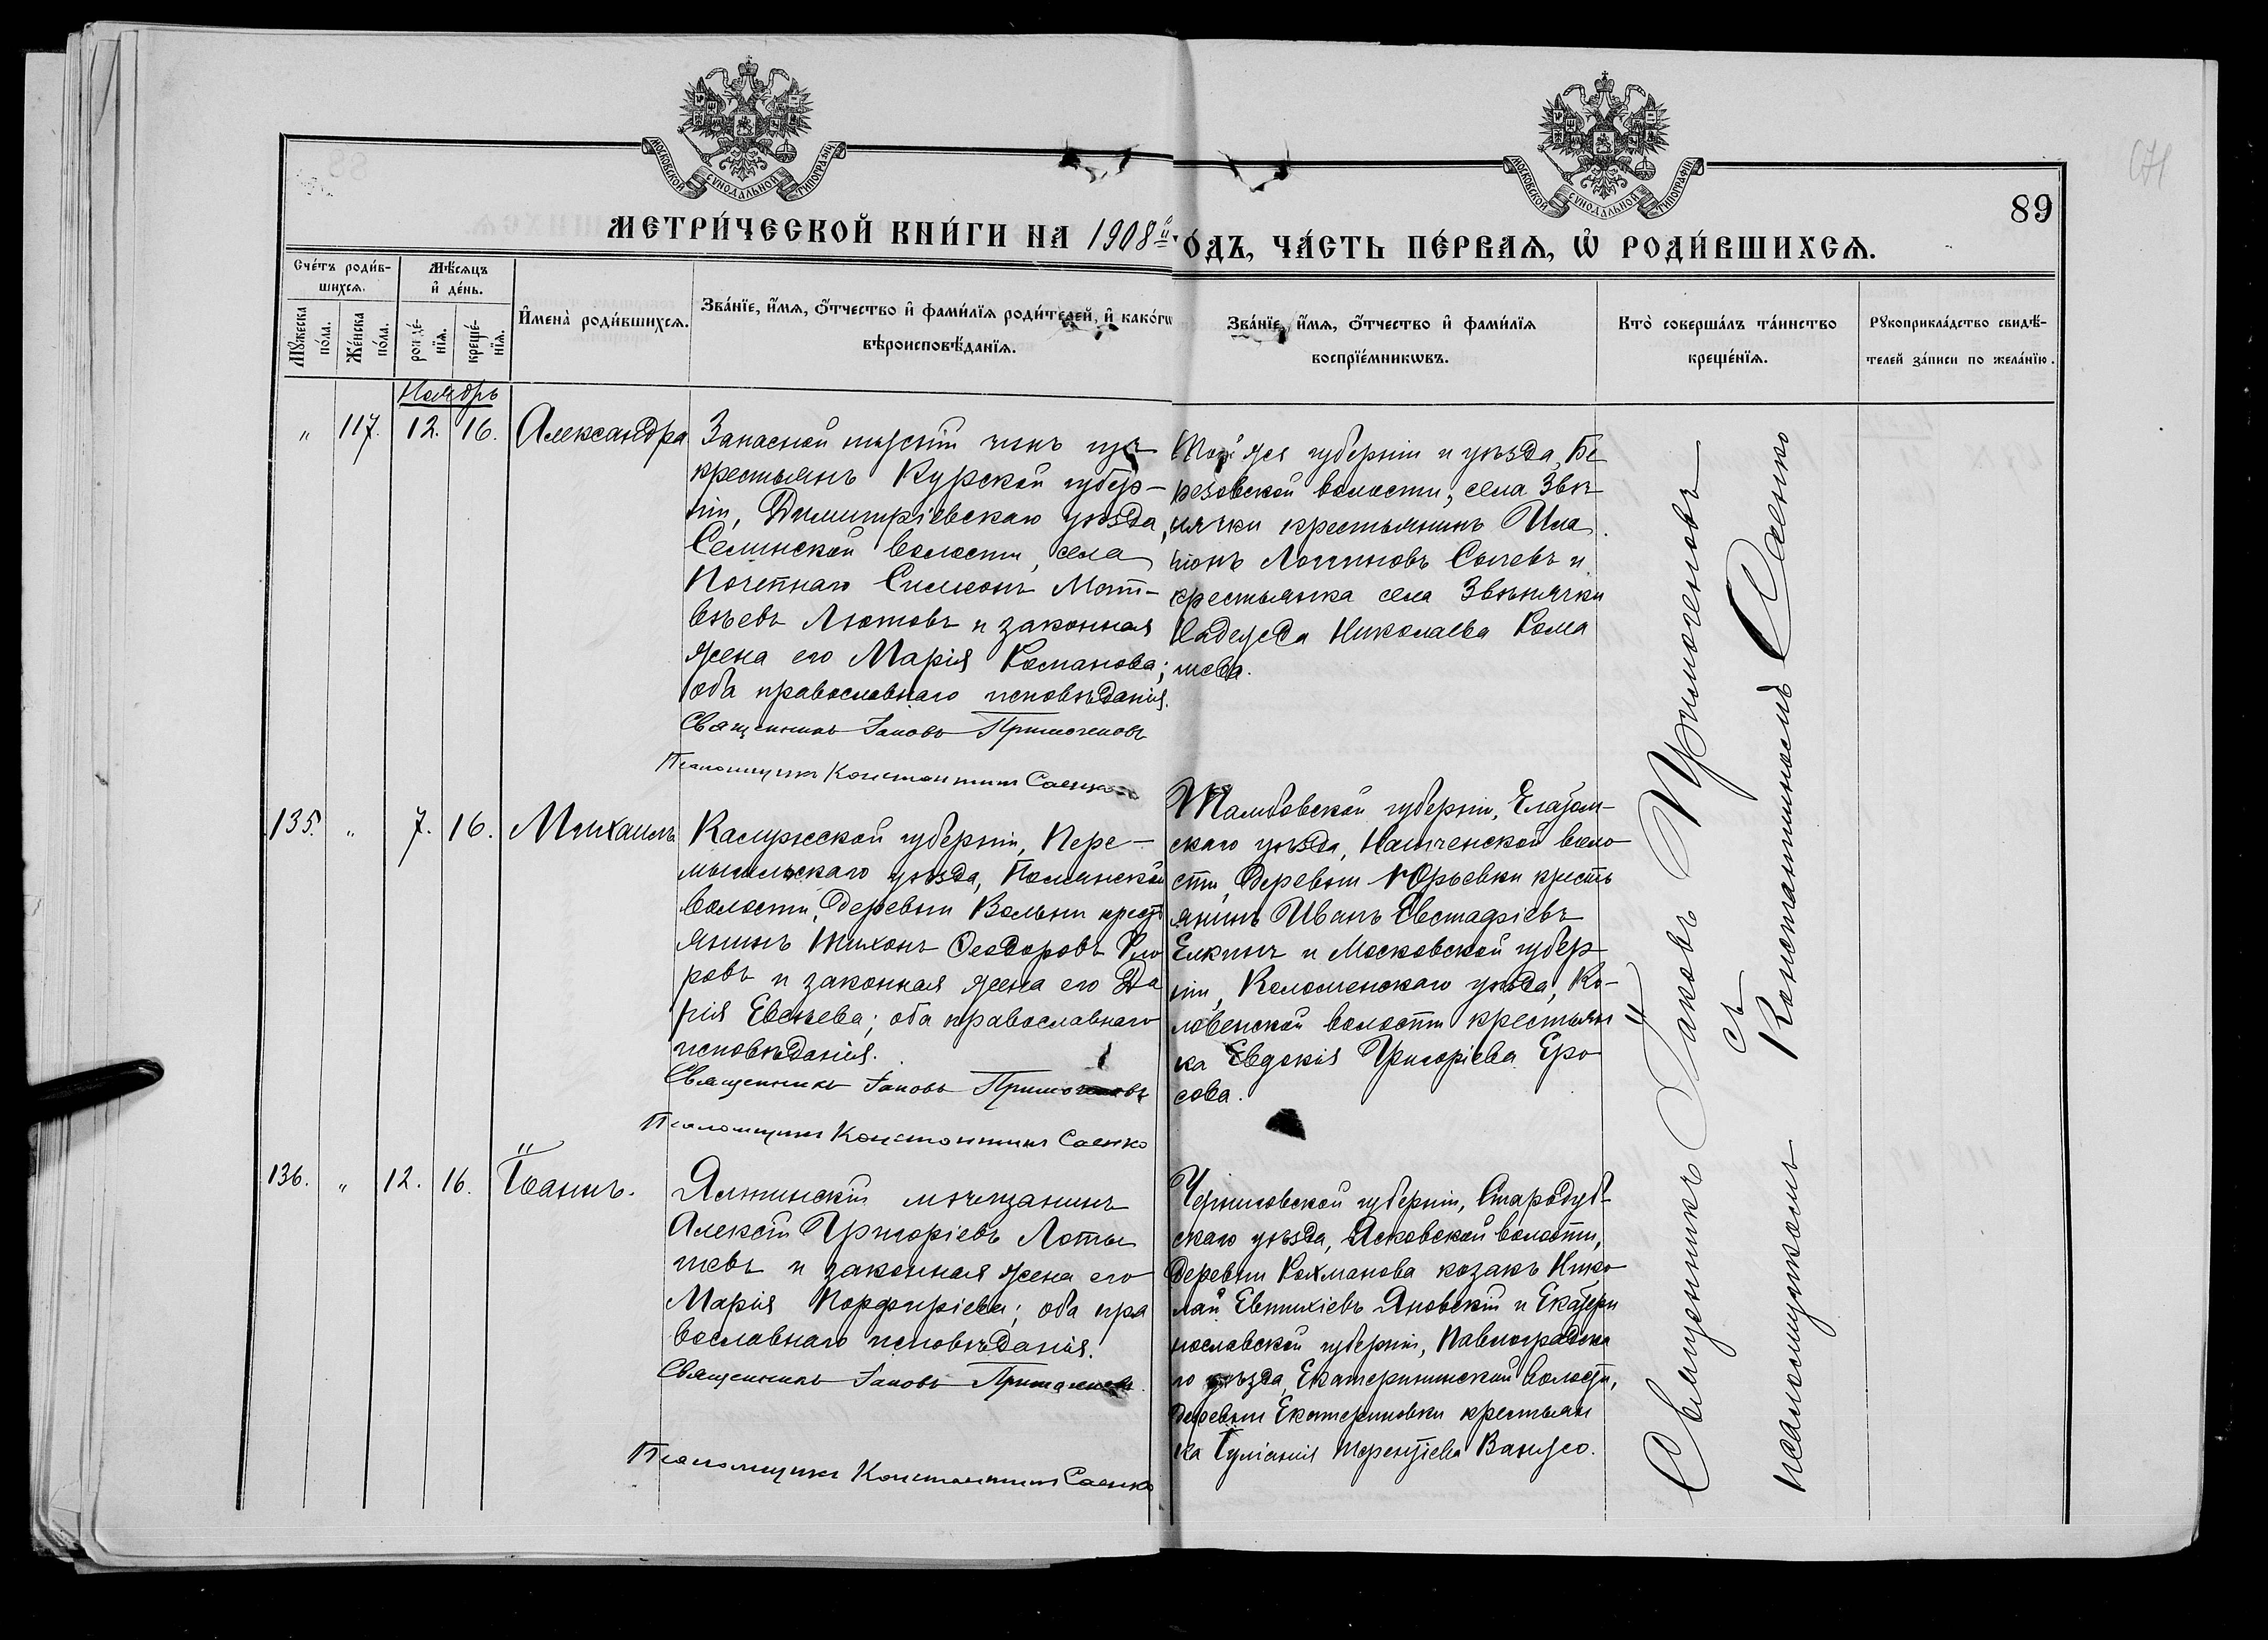 МОСКОВСКОЙ СУНОДАЛЬНОЙ ТИПОГРАФІИ
МОСКОВСКОЙ СУНОДАЛЬНОЙ ТИПОГРАФІИ
89
МЕТРИ́ЧЕСКОЙ КНИ́ГИ НА 1908й
ГО́ДЪ, ЧА́СТЬ ПЕ́РВАЯ, Ѽ РОДИ́ВШИХСѦ.
Сче́тъ роди́в-
шихсѧ.
Мѣ́сѧцъ
и҆ де́нь.
Му́жеска
по́ла.
Же́нска
по́ла.
рожде́-
нїѧ.
креще́-
нїѧ.
И҆мена̀ роди́вшихсѧ.
Зва́нїе, и҆́мѧ, ѻ҆́тчество и҆ фами́лїѧ роди́телей, и҆ како́гѡ
вѣроисповѣ́данїѧ.
Зва́нїе, и҆́мѧ, ѻ҆́тчество и҆ фами́лїѧ
воспрїе́мникѡвъ.
Кто̀ соверша́лъ та́инство
креще́нїѧ.
Рꙋкоприкла́дство свидѣ́-
телей за́писи по жела́нїю.
Ноябрь
" 117. 12. 16. Александра
Запасной младшій чинъ изъ
крестьянъ Курской губер-
ніи, Димитріевскаго уѣзда,
Селинской волости, села
Почепнаго Симеонъ Мат-
вѣевъ Лютовъ и законная
жена его Марія Романова;
оба православнаго исповѣданія.
Священникъ Іаковъ Примогеновъ
Псаломщикъ Константинъ Саенко
Той же губерніи и уѣзда, Бе
резовской волости, села Звѣ
нячки крестьянинъ Ила
ріонъ Логиновъ Сычевъ и
крестьянка села Звѣнячки
Надежда Николаева Рома
шева.
135. " 7. 16. Михаилъ
Калужской губерніи, Пере-
мышльскаго уѣзда,
волости, деревни Вольни крестъ
янинъ Тихонъ Ѳеодоровъ
ровъ и законная жена его Да
рія Евсѣева; оба православнаго
исповѣданія.
Священникъ Іаковъ Примогеновъ
Псаломщикъ Константинъ Саенко
Тамбовской губерніи, Елатом-
скаго уѣзда, воло
сти, деревни Юрьевки кресть
янинъ Иванъ Евстафіевъ
Елкинъ и Московской губер
ніи, Коломенскаго уѣзда, Ко-
ловенской волости крестьян
ка Евдокія Григоріева Еро
сова.
136. " 12. 16. Іоаннъ.
Ялтинскій мѣщанинъ
Алексій Григоріевъ Латы
шевъ и законная жена его
Марія Порфиріева; оба пра
вославнаго исповѣданія.
Священникъ Іаковъ Примогеновъ
Псаломщикъ Константинъ Саенко
Черниговской губерніи, Стародуб-
скаго уѣзда, Ясковской волости,
деревни Рохманова козакъ Нико
лай Евтихіевъ Яновскій и Екатери
нославской губерніи, Павлоградска
го уѣзда, Екатерининской волости,
деревни Екатериновки крестьян
ка Іуліанія Терентіева
Священникъ Іаковъ Примогеновъ
съ
псаломщикомъ Константиномъ Саенко